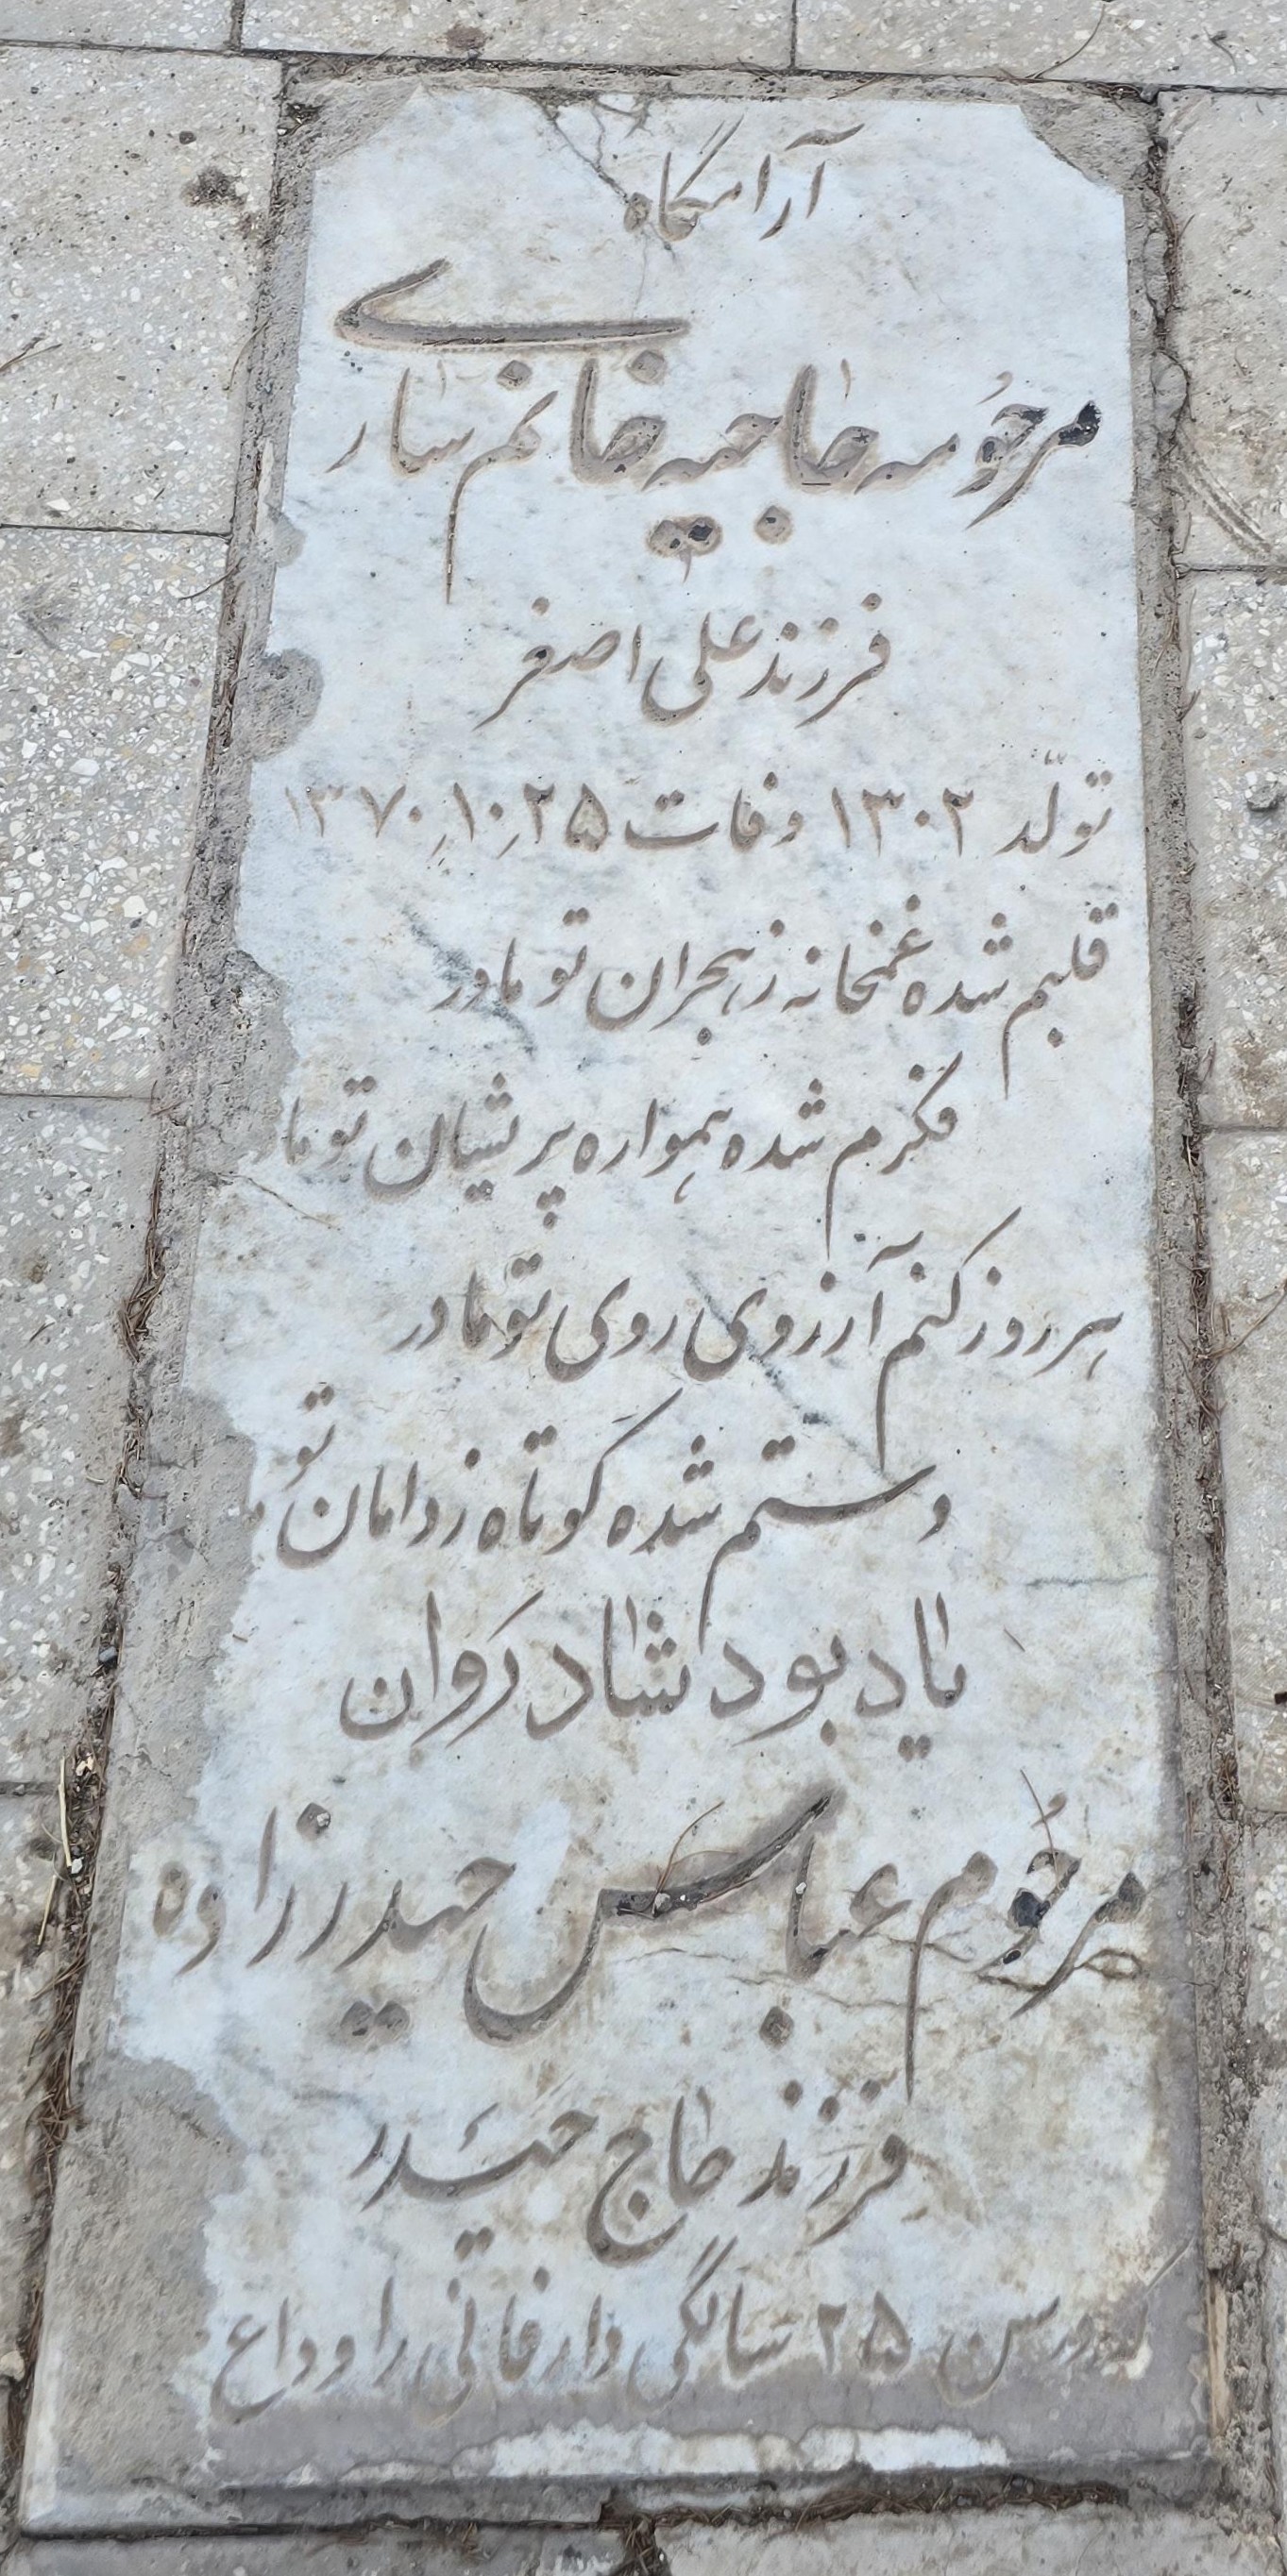 آرامگاه
مرحومه حاجیه خانم ساری
فرزند علی اصغر
تولّد ۱۳۰۲ وفات ۱۳۷۰/۱۰/۲۵
قلبم شده غمخانه ز هجران تو مادر
فکرم شده همواره پریشان تو ما
هر روز کنم آرزوی روی تو مادر
دستم شده کوتاه ز دامان تو
یادبود شادروان
مرحوم عباس حیدرزاده
فرزند حاج حیدر
که در سن ۲۵ سالگی دار فانی را وداع